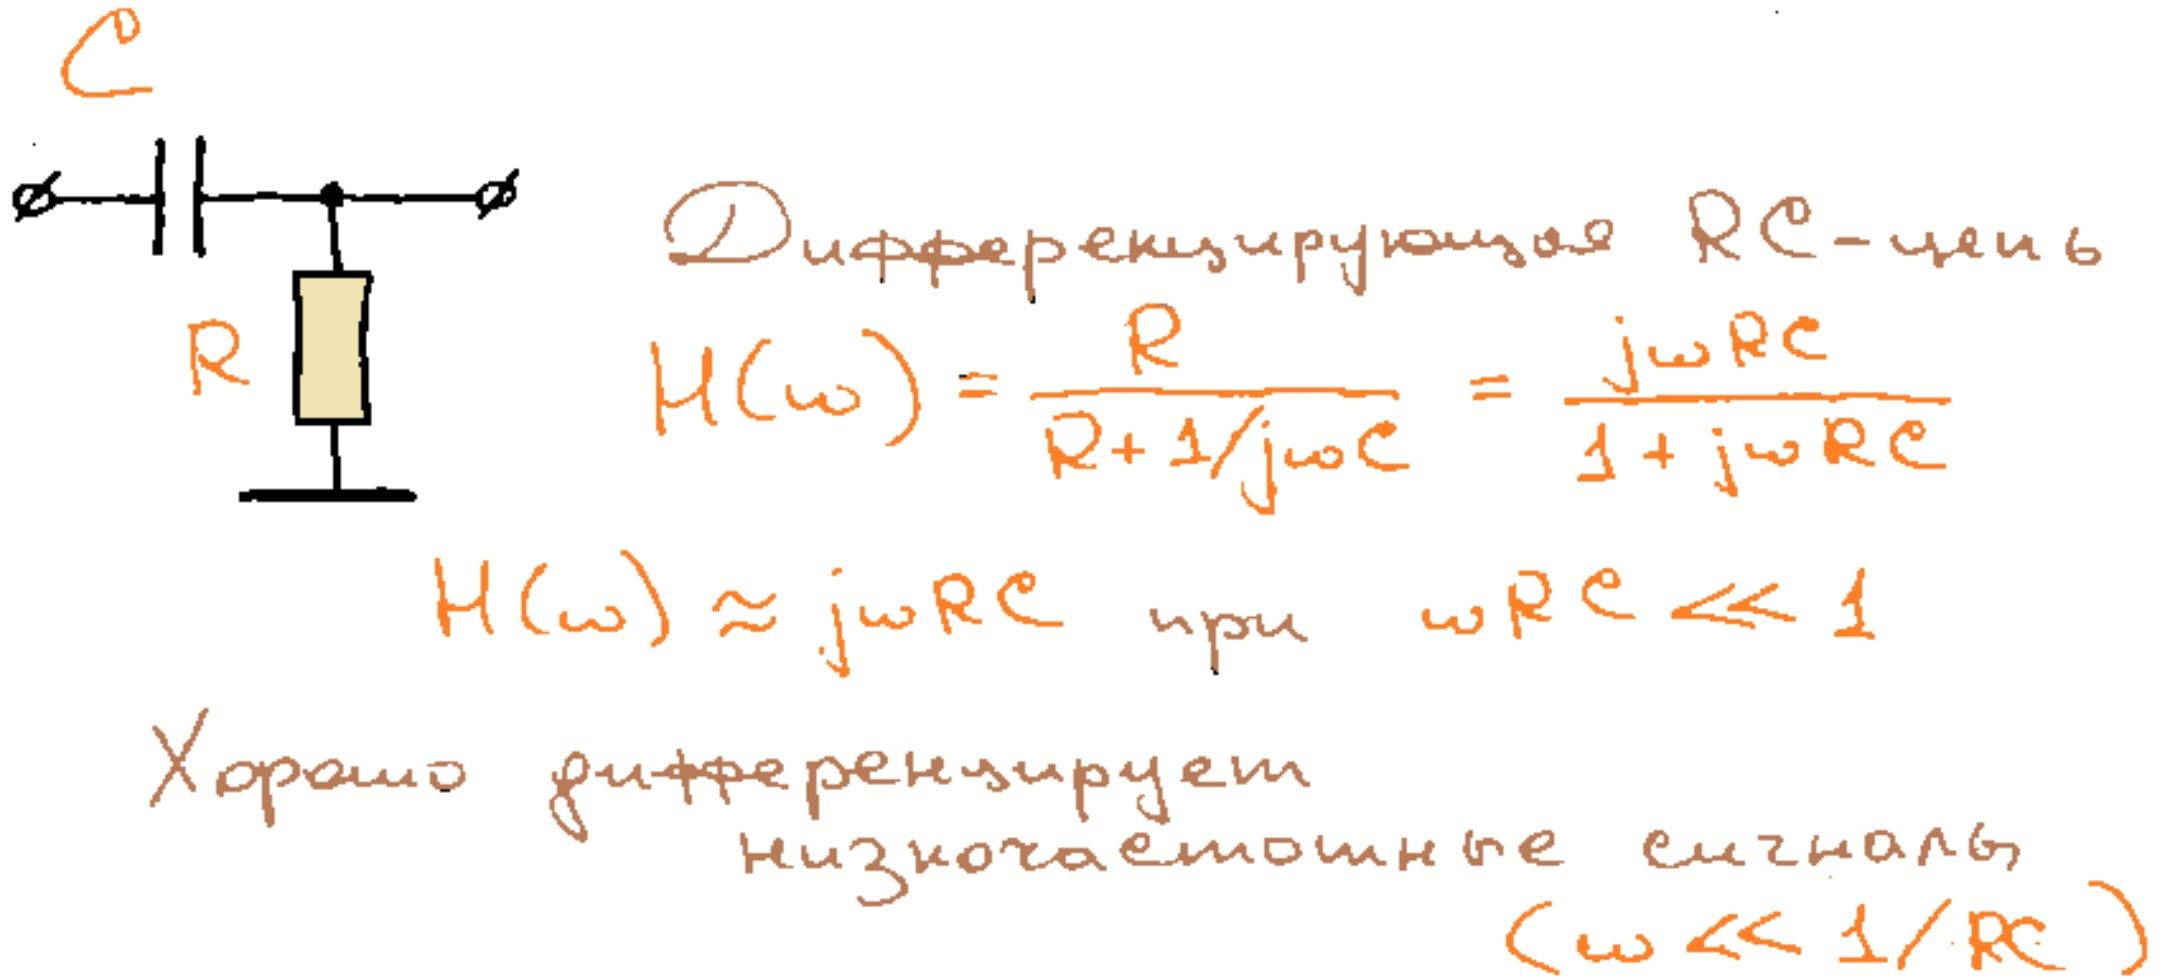 C
R
Дифференцирующая RC-цепь
H(ω) = R / (R + 1/jωC) = jωRC / (1 + jωRC)
H(ω) ≈ jωRC при ωRC << 1
Хорошо дифференцирует
низкочастотные сигналы
(ω << 1/RC)